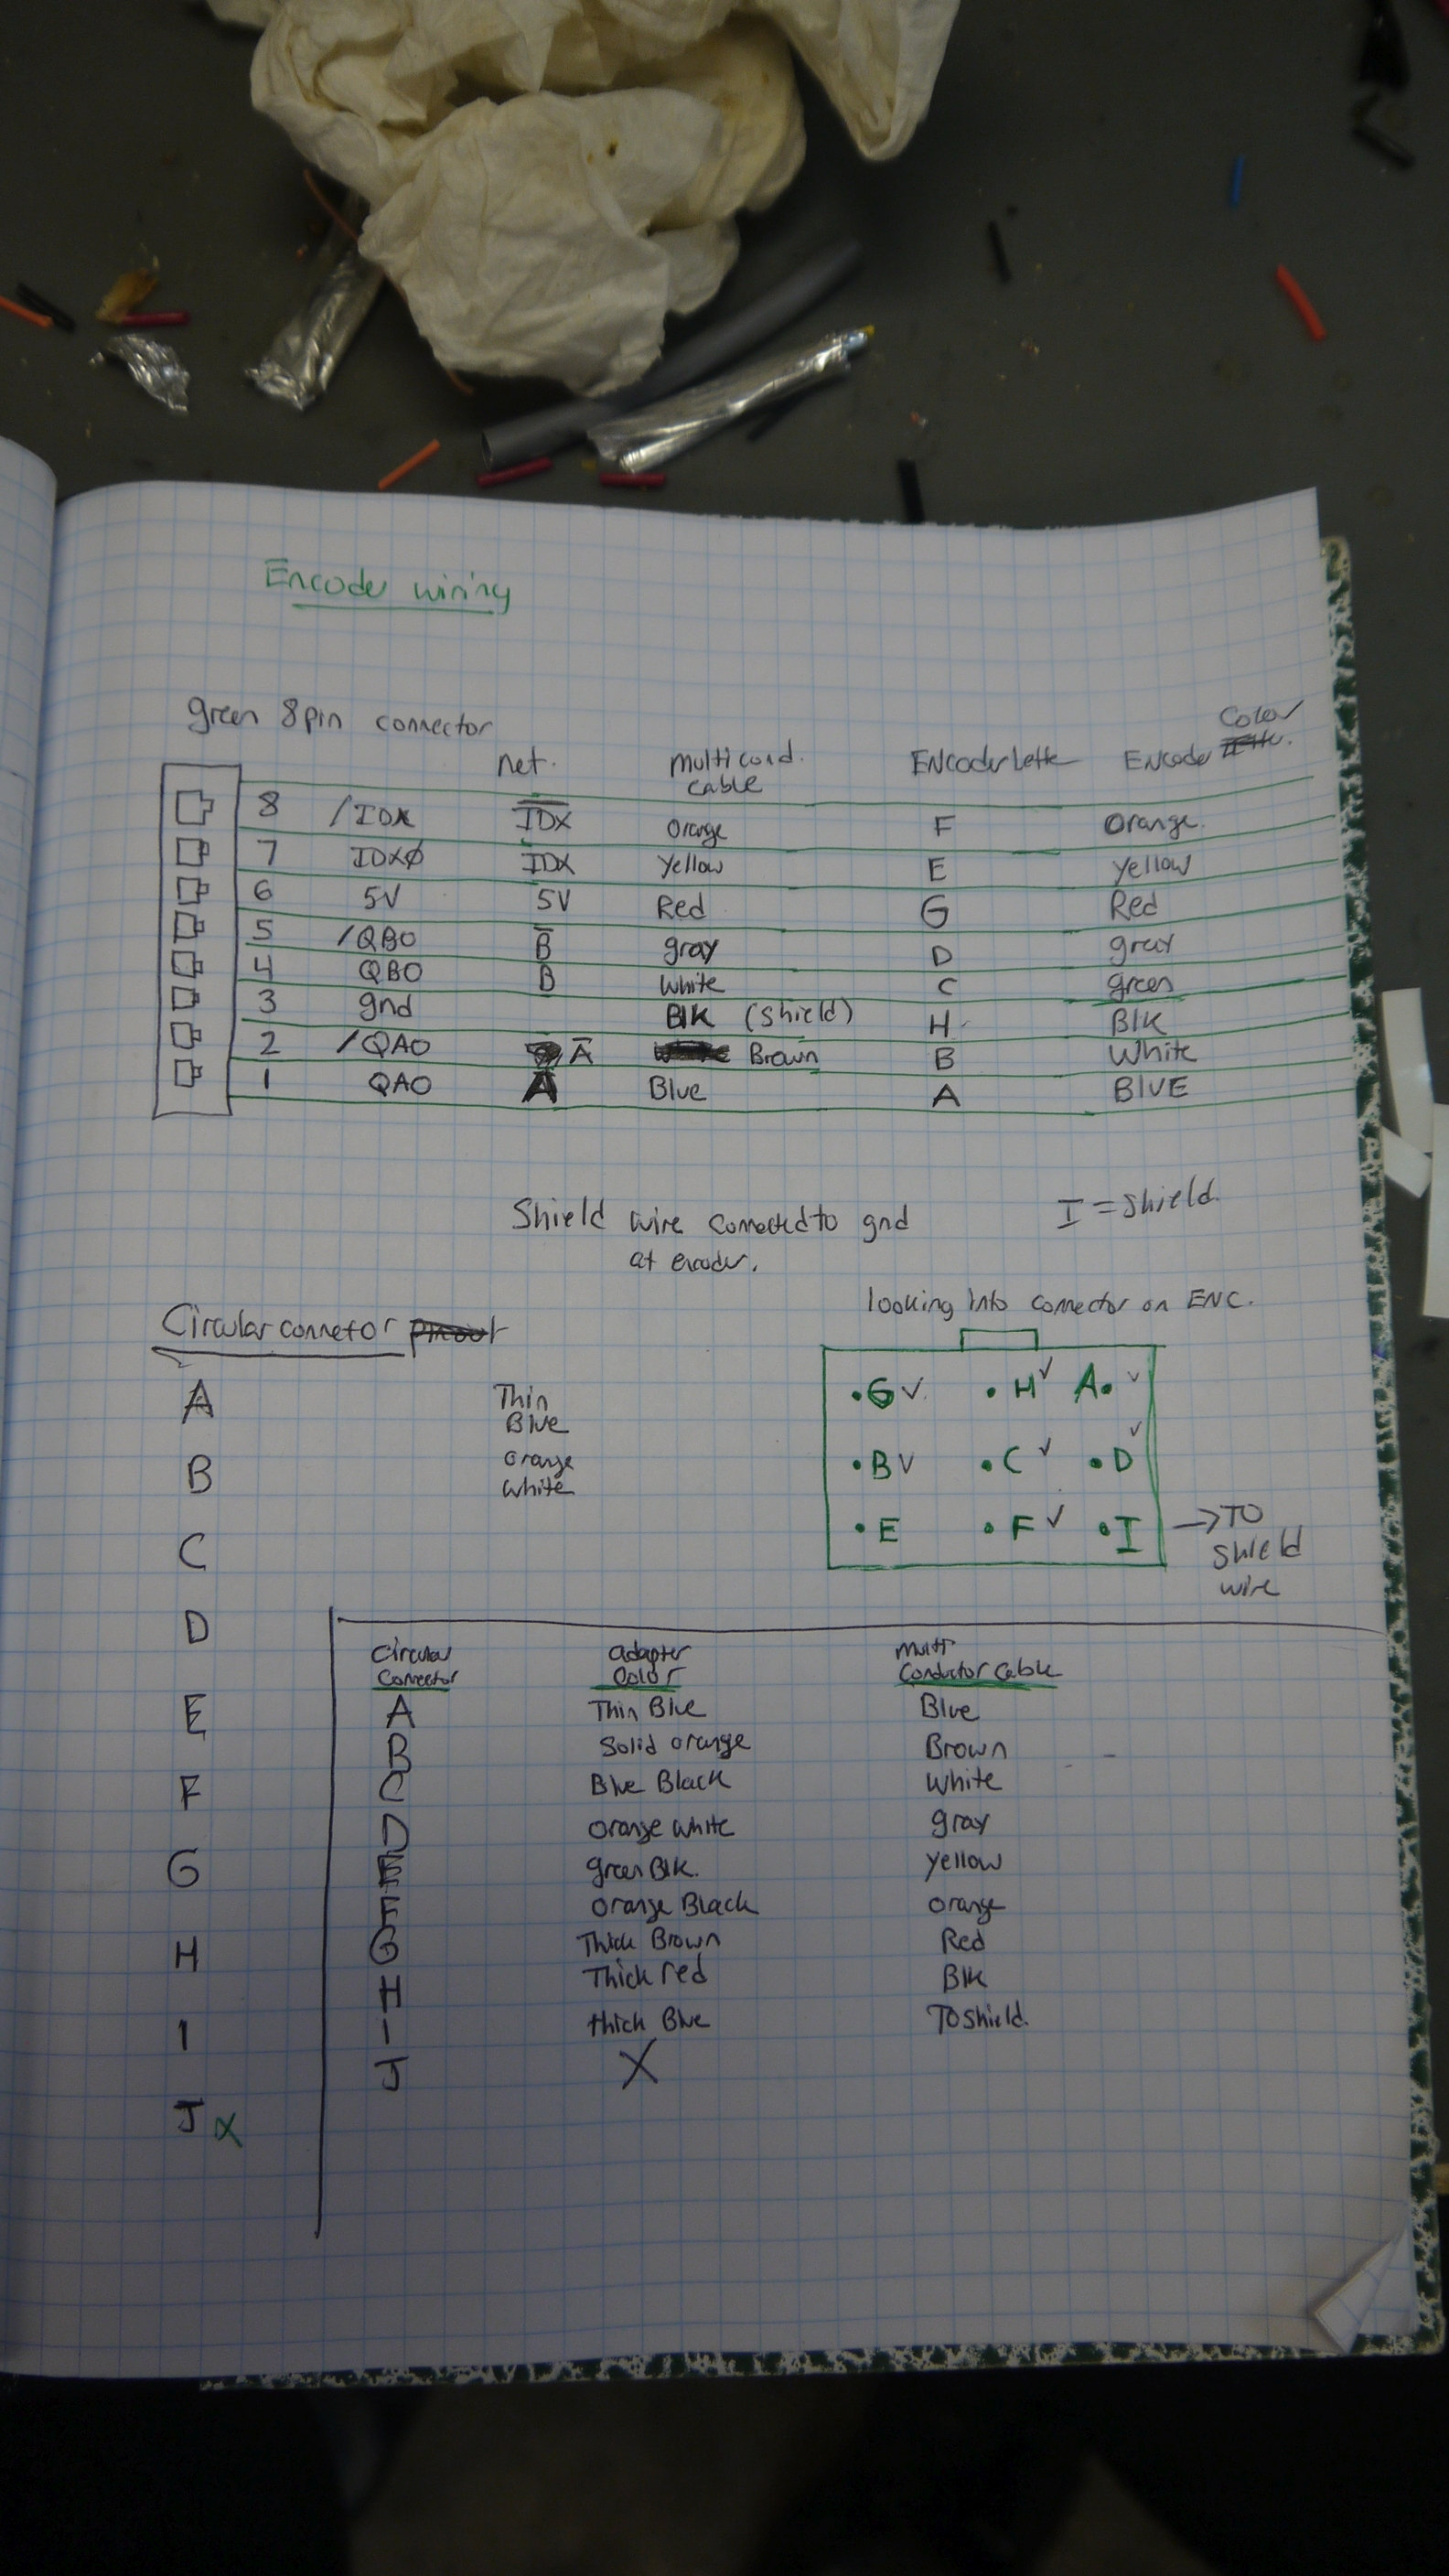 Encoder wiring
green 8pin connector
net. multi cond. cable ENCoderLette ENCode Color
8 /IDX IDX orange F orange.
7 IDXØ IDX Yellow E yellow
6 5V 5V Red G Red
5 /QBO B gray D gray
4 QBO B white C green
3 gnd Blk (Shield) H Blk
2 /QAO A Brown B White
1 QAO A Blue A BLUE
Shield wire connected to gnd I = Shield.
at encoder.
looking into connector on ENC.
Circular connetor pinout
A Thin
Blue
B orange
white
C
D
E
F
G
H
I
J X
G ✓ H ✓ A ✓
B ✓ C ✓ D ✓
E F ✓ I → TO
Shield
wire
Circular adapter Multi
Connector Color Conductor Cable
A Thin Blue Blue
B Solid orange Brown
C Blue Black White
D orange white gray
E green Blk. yellow
F orange Black orange
G Thick Brown Red
H Thick red Blk
I thick Blue TO shield.
J X